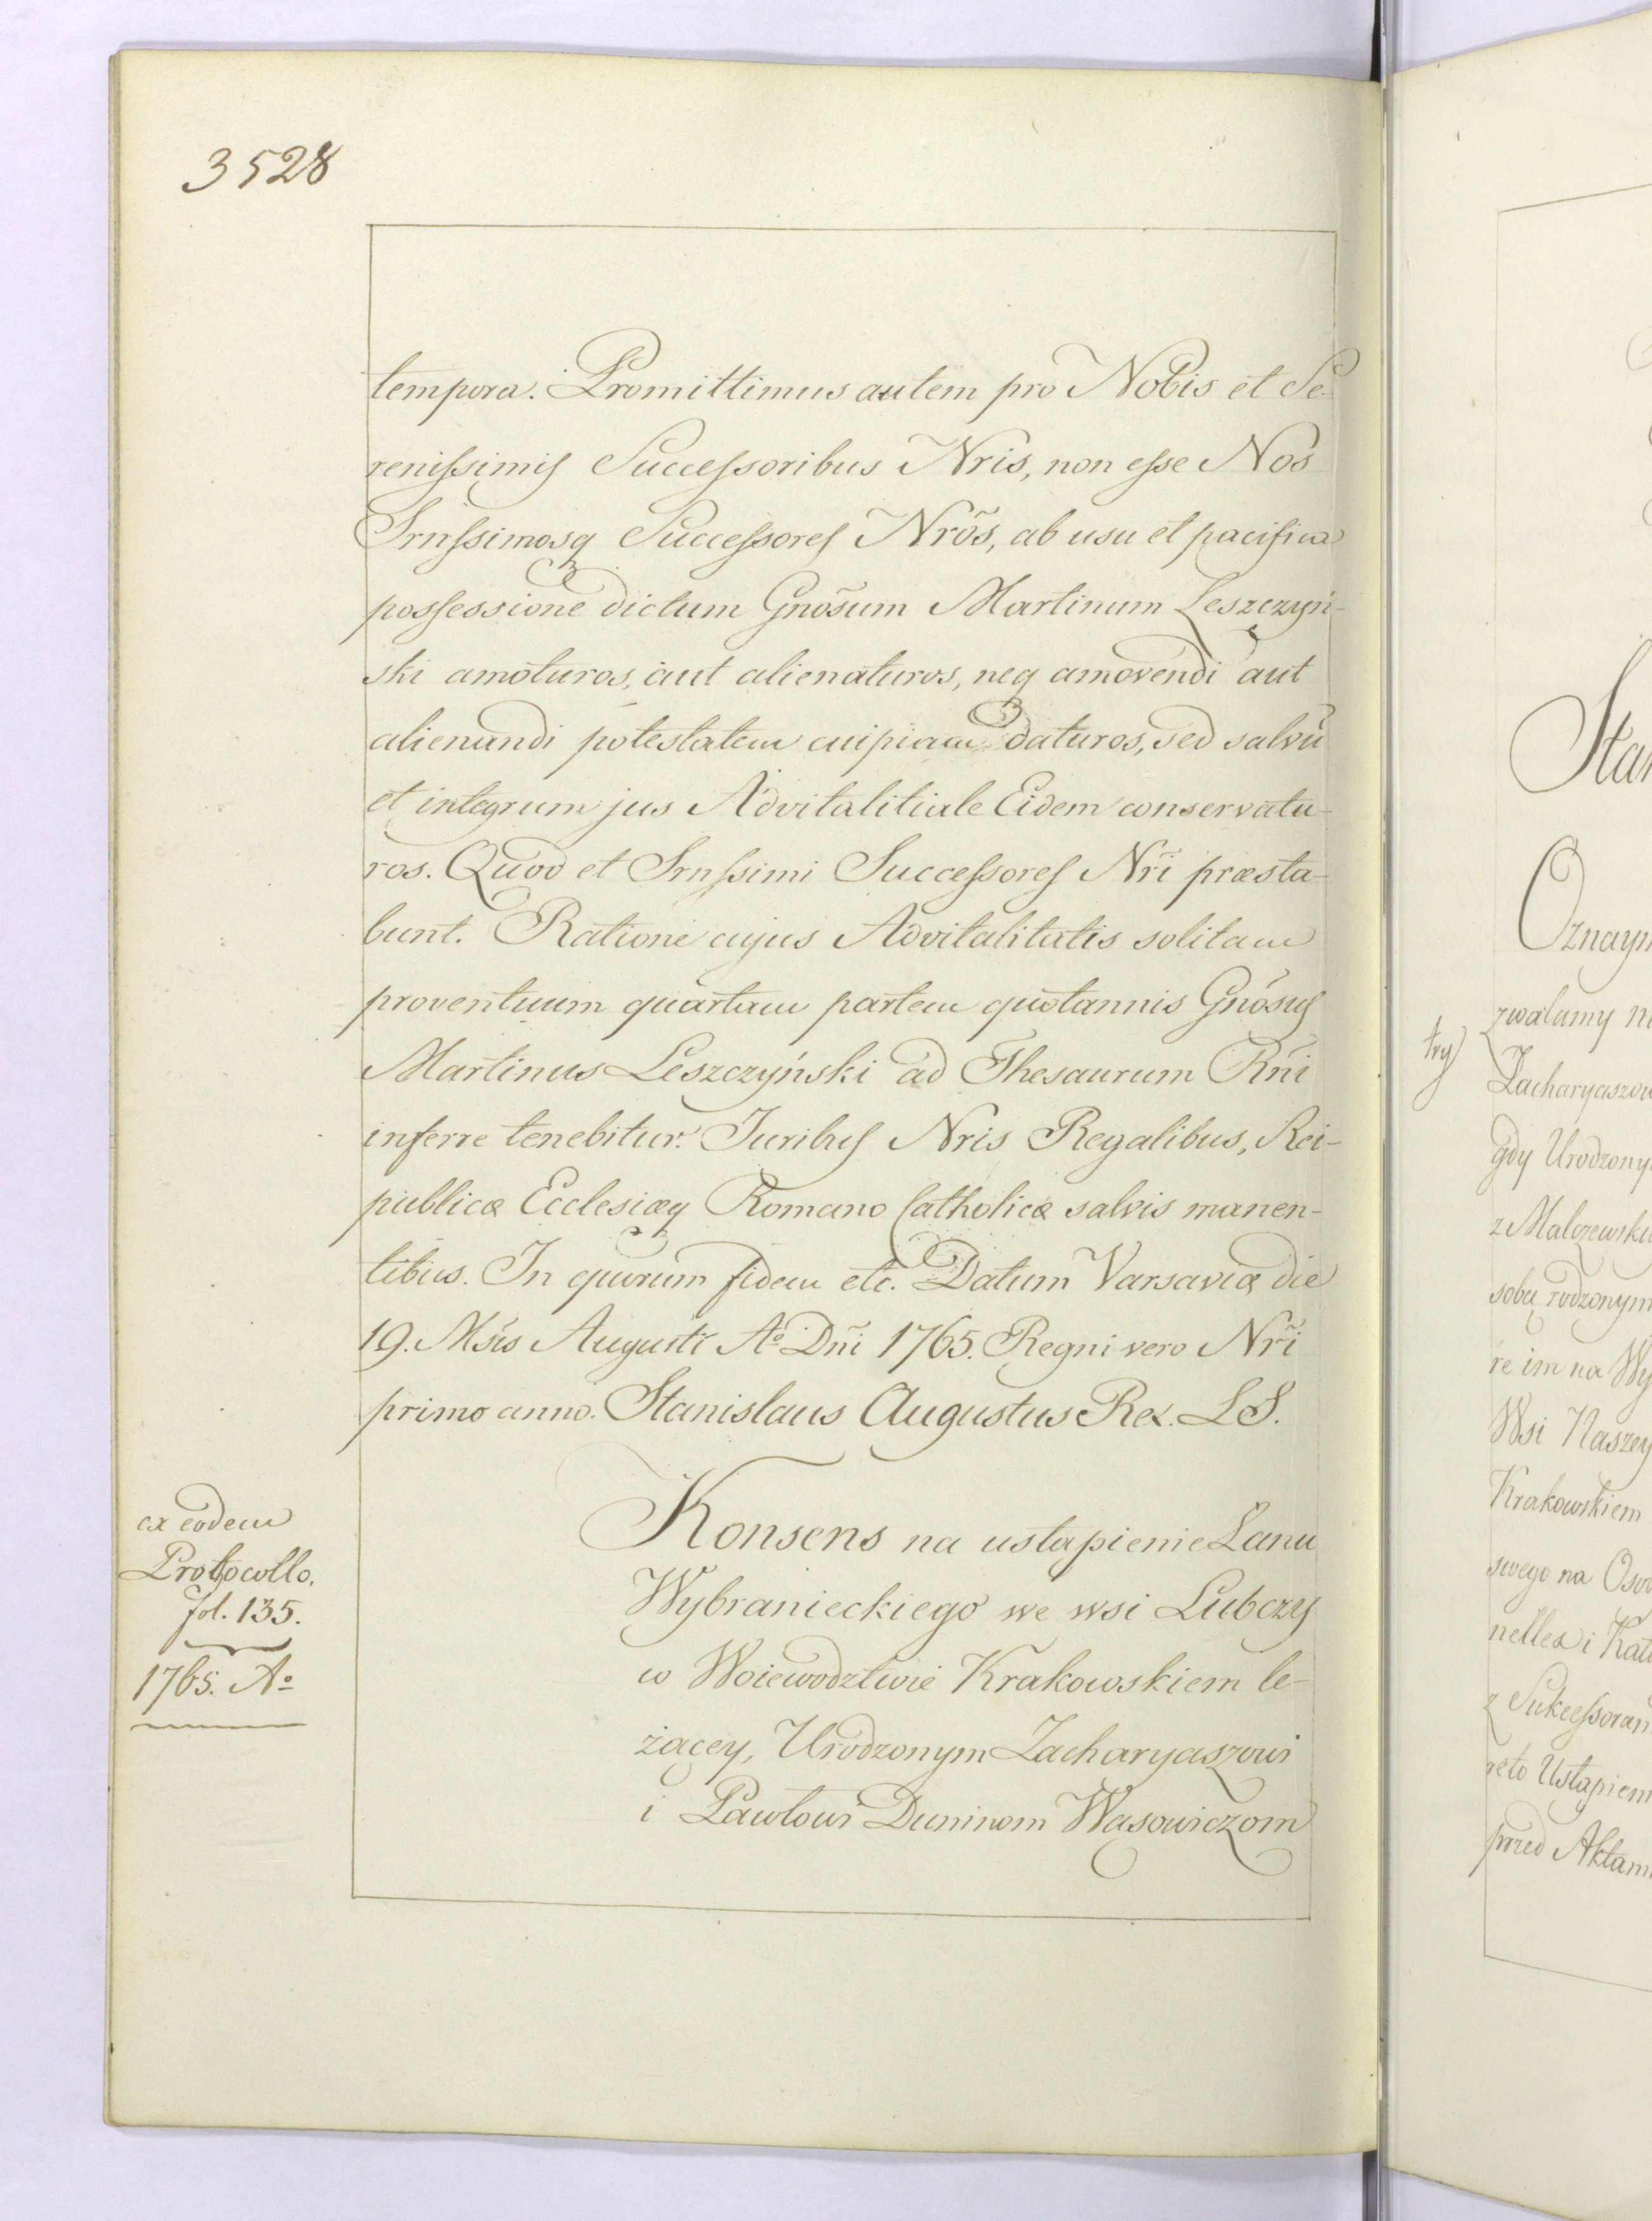 3528
tempora. Promittimus autem pro Nobis et Se-
renissimis Successoribus Nris, non esse Nos
Srnssimosq Successores Nrõs, ab usu et pacifica
possessione dictum Gnõsum Martinum Leszczyń-
ski amoturos, aut alienaturos, neq amovendi aut
alienandi potestatem cuipiam daturos, sed salvũ
et integrum jus Advitalitiale Eidem conservatu-
ros. Quod et Srnssimi Successores Nr̃i præsta-
bunt. Ratione cujus Advitalitatis solitam
proventuum quartam partem quotannis Gnõsus
Martinus Leszczyński ad Thesaurum Rñi
inferre tenebitur. Juribus Nris Regalibus, Rei-
publicæ Ecclesiæq Romano Catholicæ salvis manen-
tibus. In quorum fidem etc. Datum Varsaviæ die
19. Msis Augusti Aº Dñi 1765. Regni vero Nr̃i
primo anno. Stanislaus Augustus Rex. L S.
ex eodem
Protocollo.
fol. 135.
1765. Aº
Konsens na ustąpienie Łanu
Wybranieckiego we wsi Lubczy
w Woiewodztwie Krakowskiem le-
żącey, Urodzonym Zacharyaszowi
i Pawłowi Duninom Wąsowiczom
try
Stan
Oznaym
zwalamy na
Zacharyaszow
gdy Urodzony
z Malczewski
sobą rodzonym
re im na Wy
Wsi Naszey
Krakowskiem
swego na Oso
nellea i Kat
z Sukcessoram
neto Ustąpien
przed Aktam